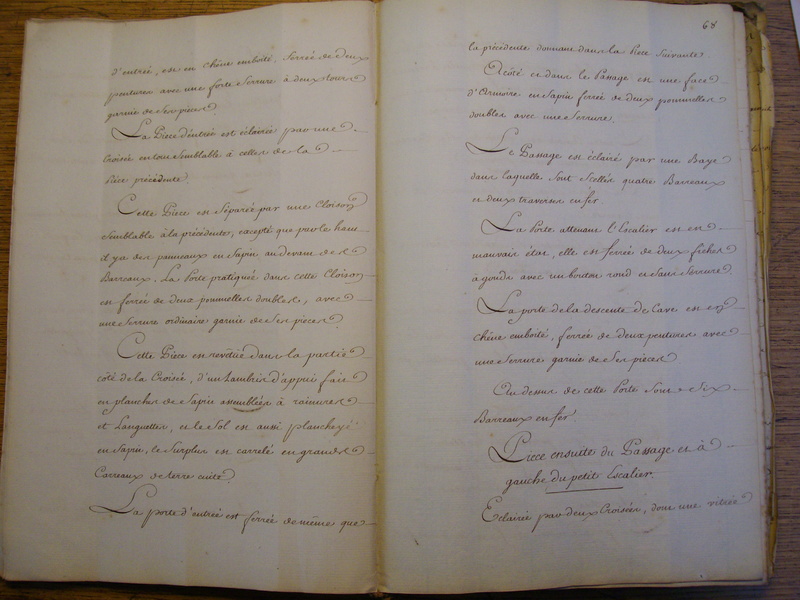 d'entrée, est en chêne emboité, ferrée de deux
pentures avec une forte serrure à deux tours
garnie de ses pieces.
La Piece d'entrée est éclairée par une
Croisée en tout semblable à celles de la
Piece précédente.
Cette Piece est séparée par une Cloison
semblable à la précédente, excepté que par le haut
il y a des panneaux en sapin au devant des
Barreaux, La Porte pratiquée dans cette Cloison
est ferrée de deux poumelles doubles, avec
une serrure ordinaire garnie de ses pieces.
Cette Piece est revetüe dans la partie
côté de la Croisée, d'un Lambris d'appui fait
en planches de sapin assemblées à rainures
et Languettes, et le Sol est aussi plancheyé
en sapin, le surplus est carrelé en grands
Carreaux de terre cuite.
La porte d'entrée est ferrée de même que
68
la précédente donnant dans la Piece suivante.
A côté et dans le Passage est une face
d'Armoire en sapin ferrée de deux poumelles
doubles avec une serrure.
Le Passage est éclairé par une Baye
dans laquelle sont scellés quatre Barreaux
et deux traverses en fer
La Porte attenant l'Escalier est en
mauvais état, elle est ferrée de deux fiches
à gonds avec un bouton rond et sans serrure.
La porte de la descente de Cave est en
chêne emboité, ferrée de deux pentures avec
une serrure garnie de ses pieces
Au dessus de cette Porte sont six
Barreaux en fer.
Piece ensuite du Passage et à
gauche du petit Escalier.
Eclairée par deux Croisées, dont une vitrée